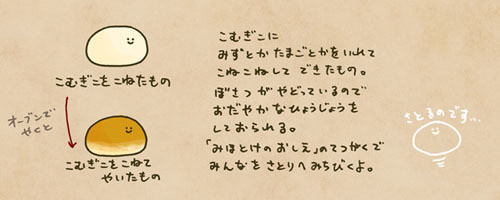 こむぎこをこねたもの
オーブンで
やくと
こむぎこをこねて
やいたもの
こむぎこに
みずとか たまごとかをいれて
こねこねして できたもの。
ぼさつ が やどっているので
おだやかなひょうじょうを
しておられる。
「みほとけの おしえ」のてつがくで
みんなを さとりへ みちびくよ。
さとるのです…